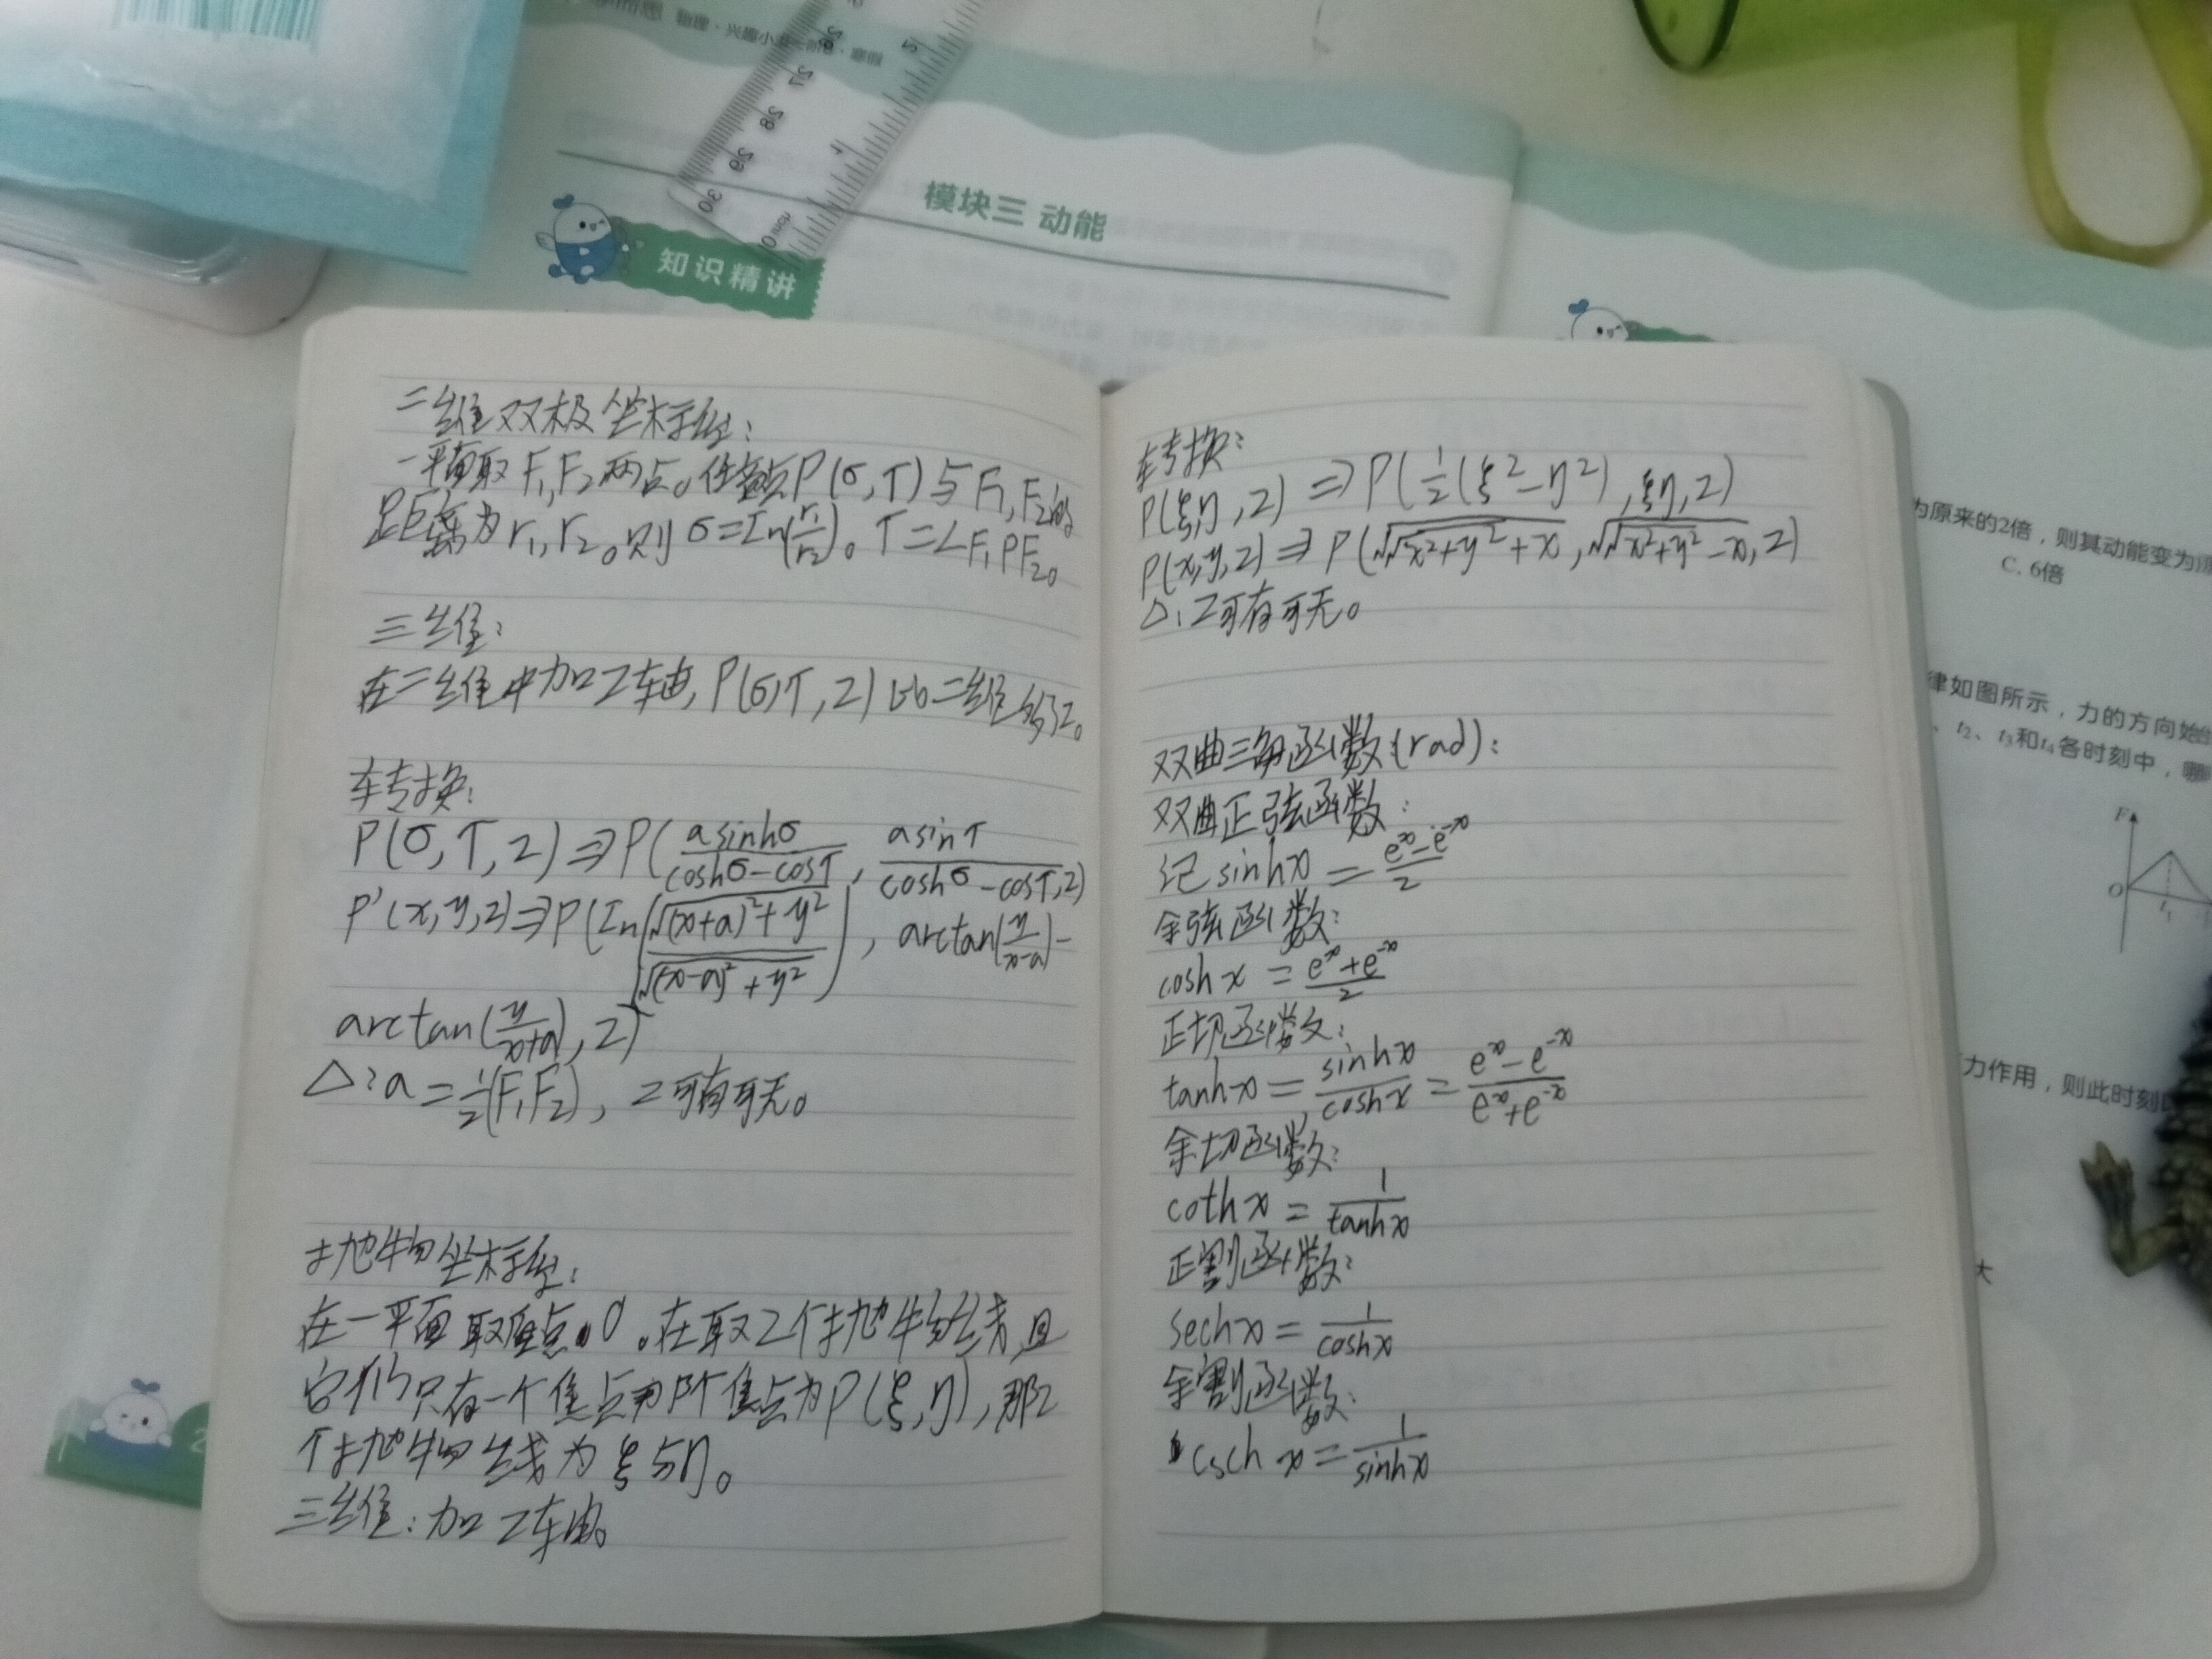 物理·兴趣小
27
28
29
30
模块三 动能
知识精讲
二维双极坐标系:
一平面取F₁,F₂两点。任意点P(σ,τ)与F₁,F₂的
距离为r₁,r₂。则σ=In(r₁/r₂)。τ=∠F₁PF₂。
三维:
在二维中加Z轴,P(σ,τ,Z)比二维多Z。
转换:
P(σ,τ,z)⇒P(asinhσ/(coshσ-cosτ), asinτ/(coshσ-cosτ),z)
P'(x,y,z)⇒P(In(√((x+a)²+y²)/√((x-a)²+y²)), arctan(y/(x-a))-
arctan(y/(x+a)),z)
△:a=½(F₁F₂), z可有可无。
抛物坐标系:
在一平面取原点O。在取2个抛物线,且
它们只有一个焦点 焦点为P(ξ,η),那2
个抛物线为ξ与η。
三维:加Z轴。
转换:
P(ξ,η,z)⇒P(½(ξ²-η²),ξη,z)
P(x,y,z)⇒P(√(√(x²+y²)+x),√(√(x²+y²)-x),z)
△:Z可有可无。
双曲三角函数(rad):
双曲正弦函数:
记sinhx=(eˣ-e⁻ˣ)/2
余弦函数:
coshx=(eˣ+e⁻ˣ)/2
正切函数:
tanhx=sinhx/coshx=(eˣ-e⁻ˣ)/(eˣ+e⁻ˣ)
余切函数:
cothx=1/tanhx
正割函数:
sechx=1/coshx
余割函数:
cschx=1/sinhx
为原来的2倍,则其动能变为原
C. 6倍
律如图所示,力的方向始
、t₂、t₃和t₄各时刻中,哪
F
O
t₁
力作用,则此时刻
大